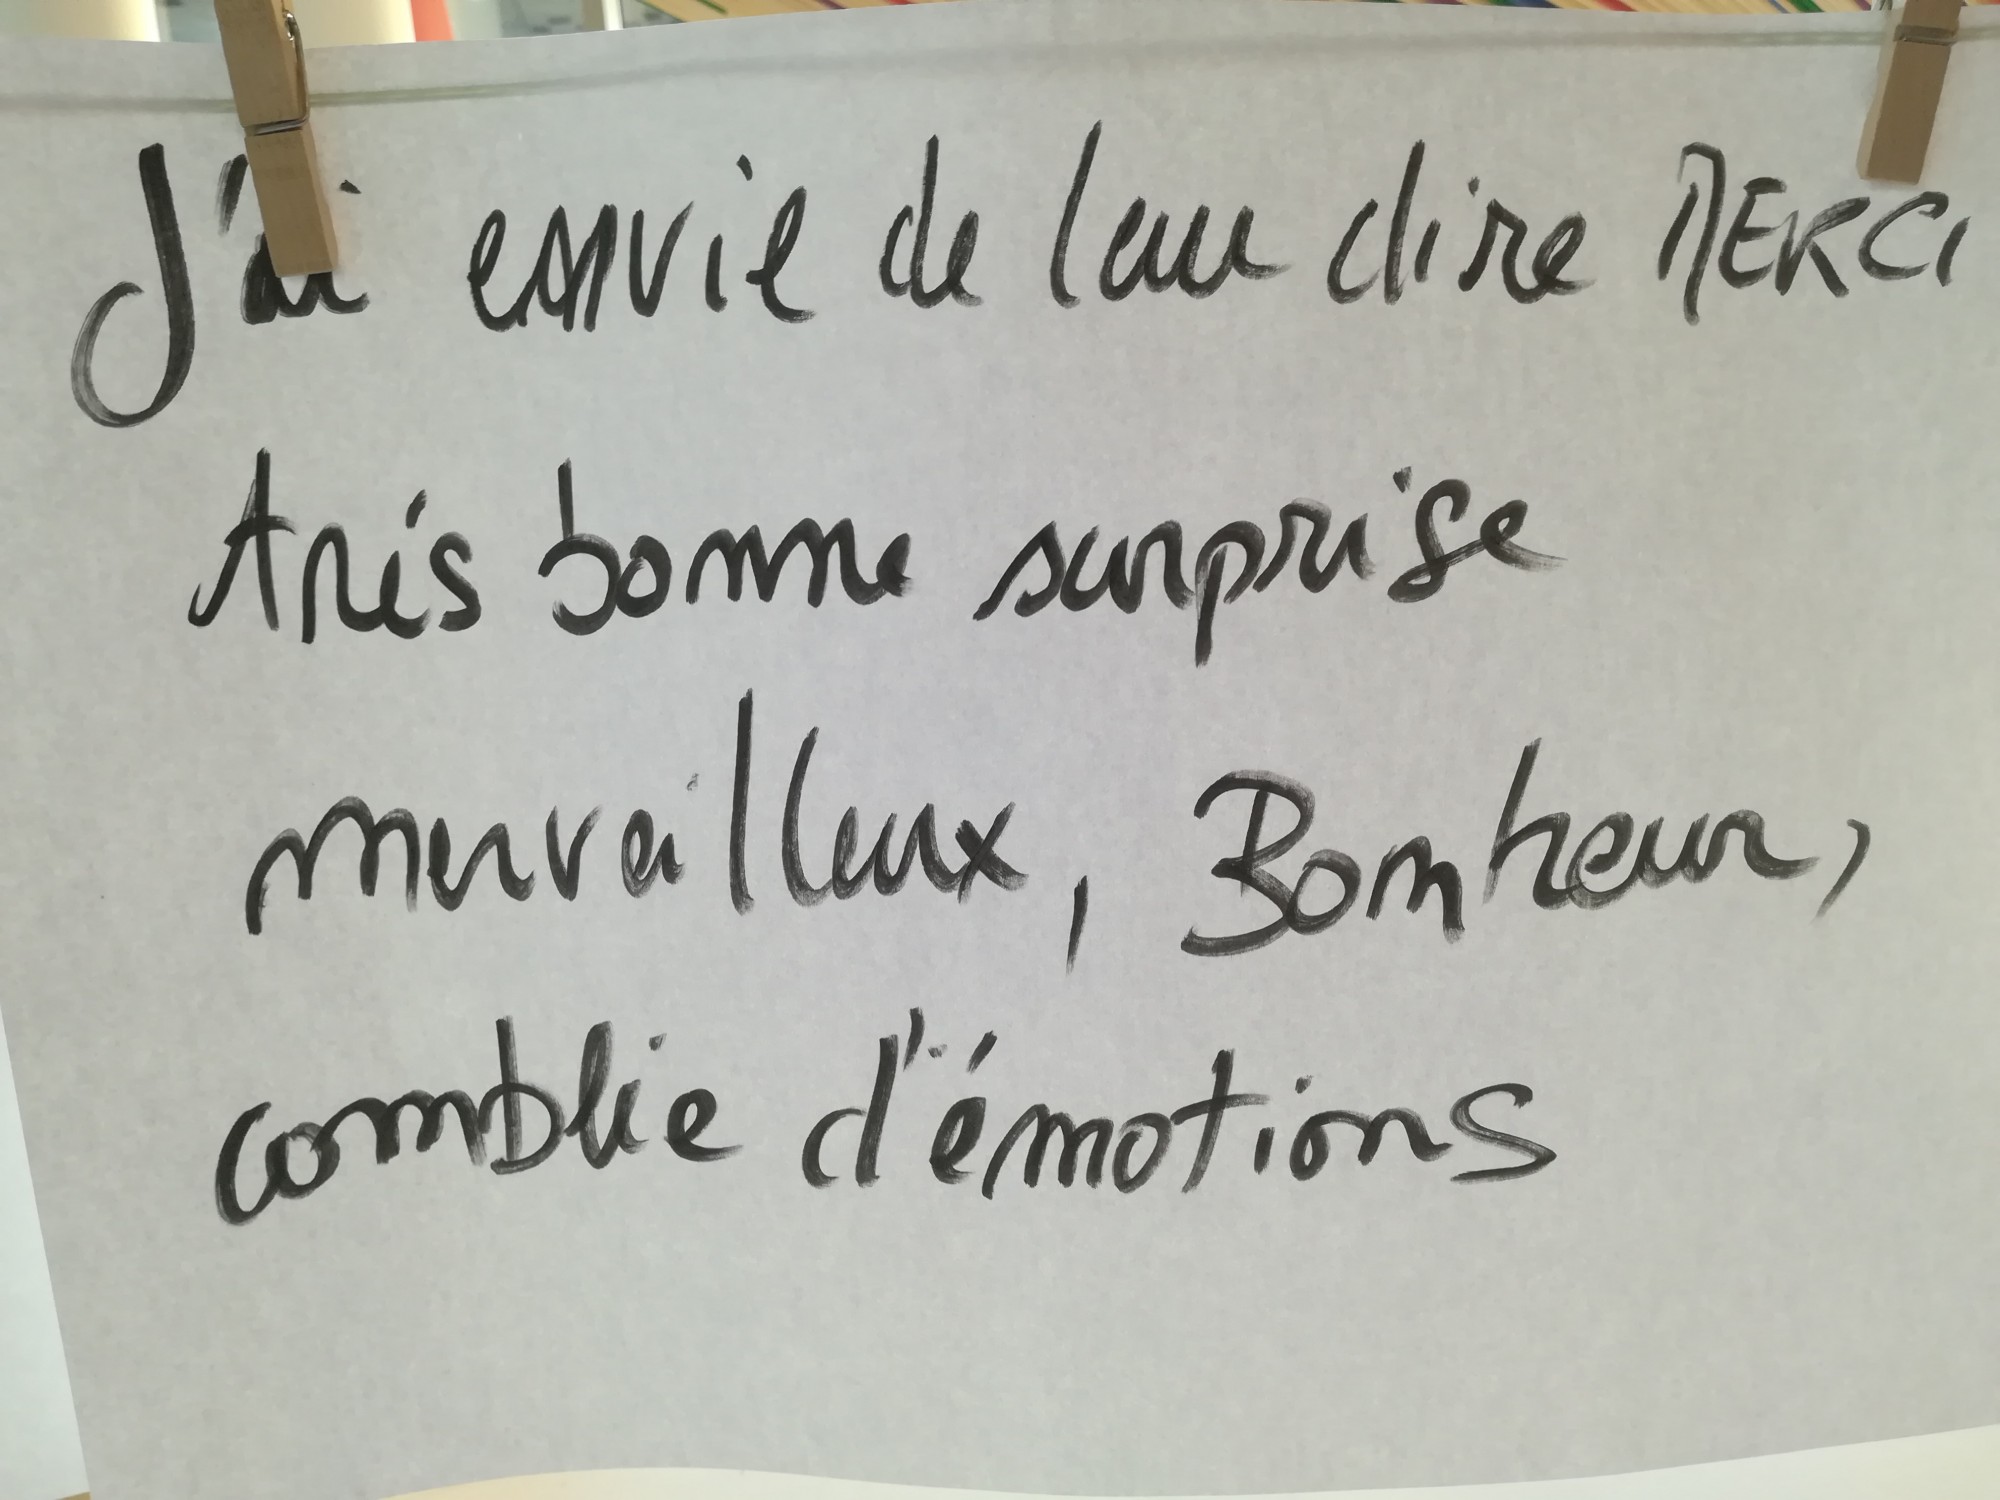 J'ai envie de leur dire MERCI
très bonne surprise
mervailleux, Bonheur,
comblie d'émotions